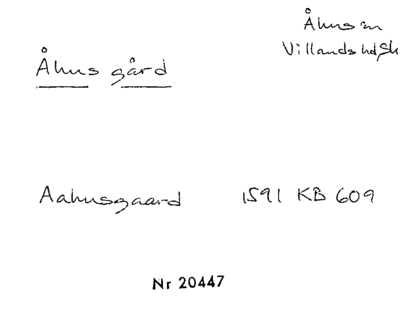 Åhus sn
Villands hd Sk
Åhus gård
Aahusgaard 1591 KB 609
Nr 20447